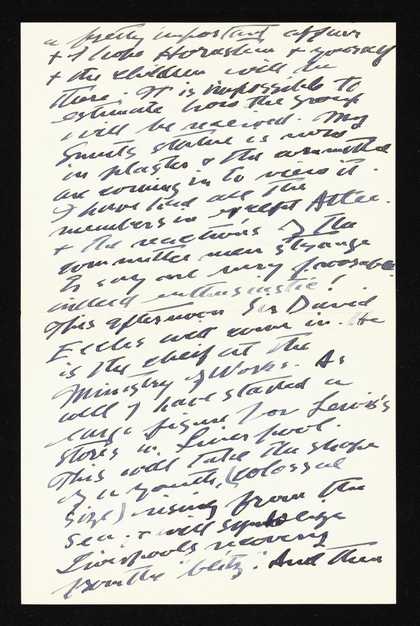 a pretty important affair
+ I hope Horatia + yourself
+ the children will be
there. It is impossible to
estimate how the group
will be received. My
Smuts statue is now
in plaster & the committee
are coming in to view it.
I have had all the
members in except Attlee.
+ the reactions of the
committee men strange
to say are very favorable
indeed enthusiastic!
This afternoon Sir David
Eccles will come in. He
is the chief at the
Ministry of Works. As
well I have started a
large figure for Lewis's
stores in Liverpool.
This will take the shape
of a youth, (colossal
size) rising from the
sea. + will symbolize
Liverpools recovery
from the "blitz". And then